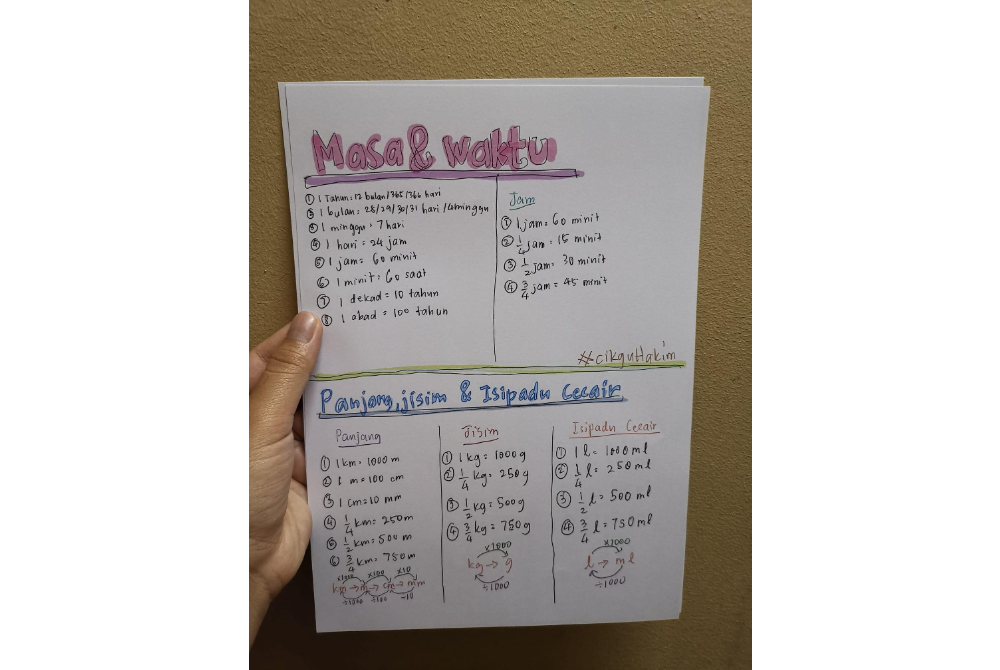 Masa & Waktu
① 1 Tahun = 12 bulan/365/366 hari
② 1 bulan = 28/29/30/31 hari /4minggu
③ 1 minggu = 7 hari
④ 1 hari = 24 jam
⑤ 1 jam = 60 minit
⑥ 1 minit = 60 saat
⑦ 1 dekad = 10 tahun
⑧ 1 abad = 100 tahun
Jam
① 1 jam = 60 minit
② 1/4 jam = 15 minit
③ 1/2 jam = 30 minit
④ 3/4 jam = 45 minit
#cikguHakim
Panjang, jisim & Isipadu Cecair
Panjang
① 1 km = 1000 m
② 1 m = 100 cm
③ 1 cm = 10 mm
④ 1/4 km = 250m
⑤ 1/2 km = 500 m
⑥ 3/4 km = 750 m
×1000 ×100 ×10
km → m → cm → mm
÷1000 ÷100 ÷10
Jisim
① 1 kg = 1000g
② 1/4 kg = 250g
③ 1/2 kg = 500g
④ 3/4 kg = 750g
×1000
kg → g
÷1000
Isipadu Cecair
① 1 l = 1000 ml
② 1/4 l = 250 ml
③ 1/2 l = 500 ml
④ 3/4 l = 750 ml
×1000
l → ml
÷1000